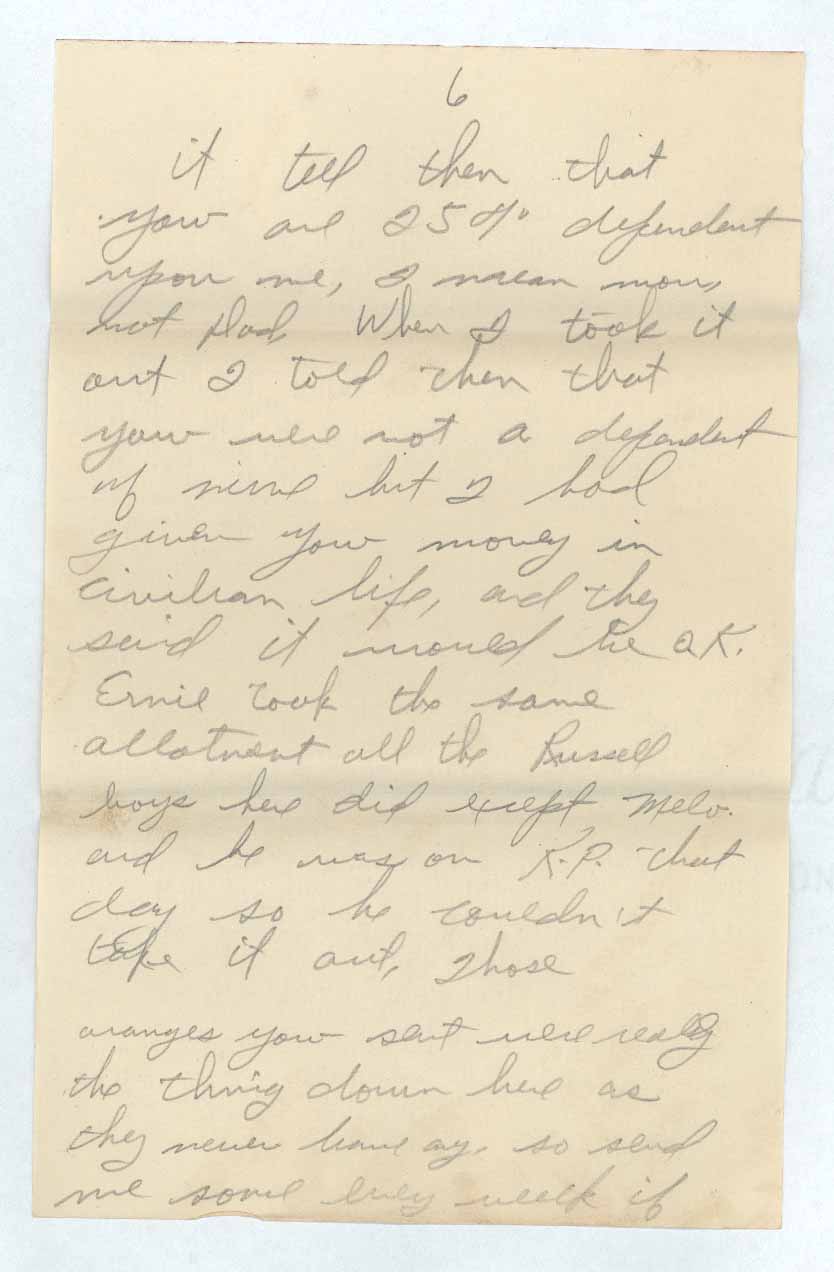 6
it tell them that
you are 25% dependent
upon me, I mean mom,
not Dad. When I took it
out I told them that
you were not a dependent
of mine but I had
given you money in
civilian life, and they
said it would be O.K.
Ernie took the same
allotment all the Russell
boys here did except Melv.
and he was on K.P. that
day so he couldn't
take it out, Those
oranges you sent were really
the thing down here as
they never have any. so send
me some every week if